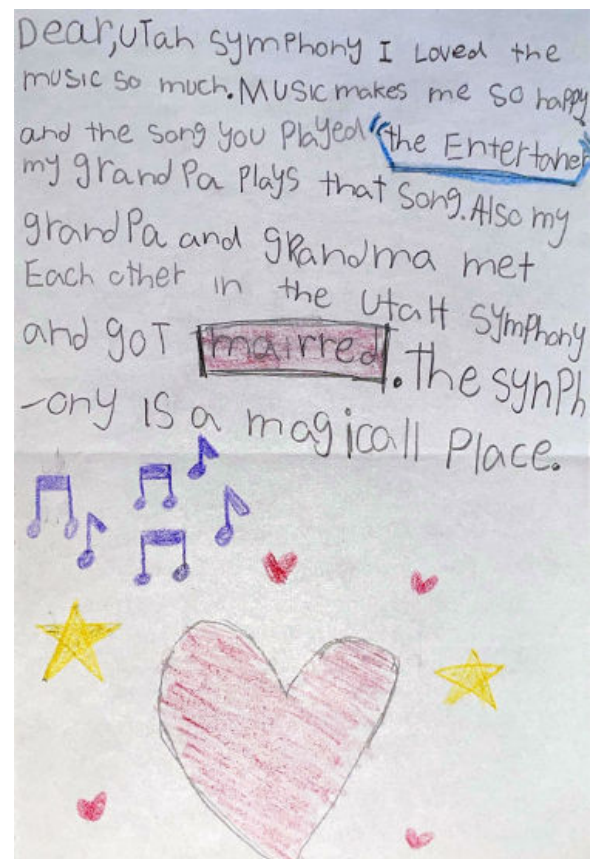 Dear, UTah symphony I Loved the
music so much. Music makes me so happy
and the song you Played "the Entertaner
my grandPa Plays that Song. Also my
grandPa and grandma met
Each other in the UtaH Symphony
and goT mairred. The synph
-ony is a magicall Place.